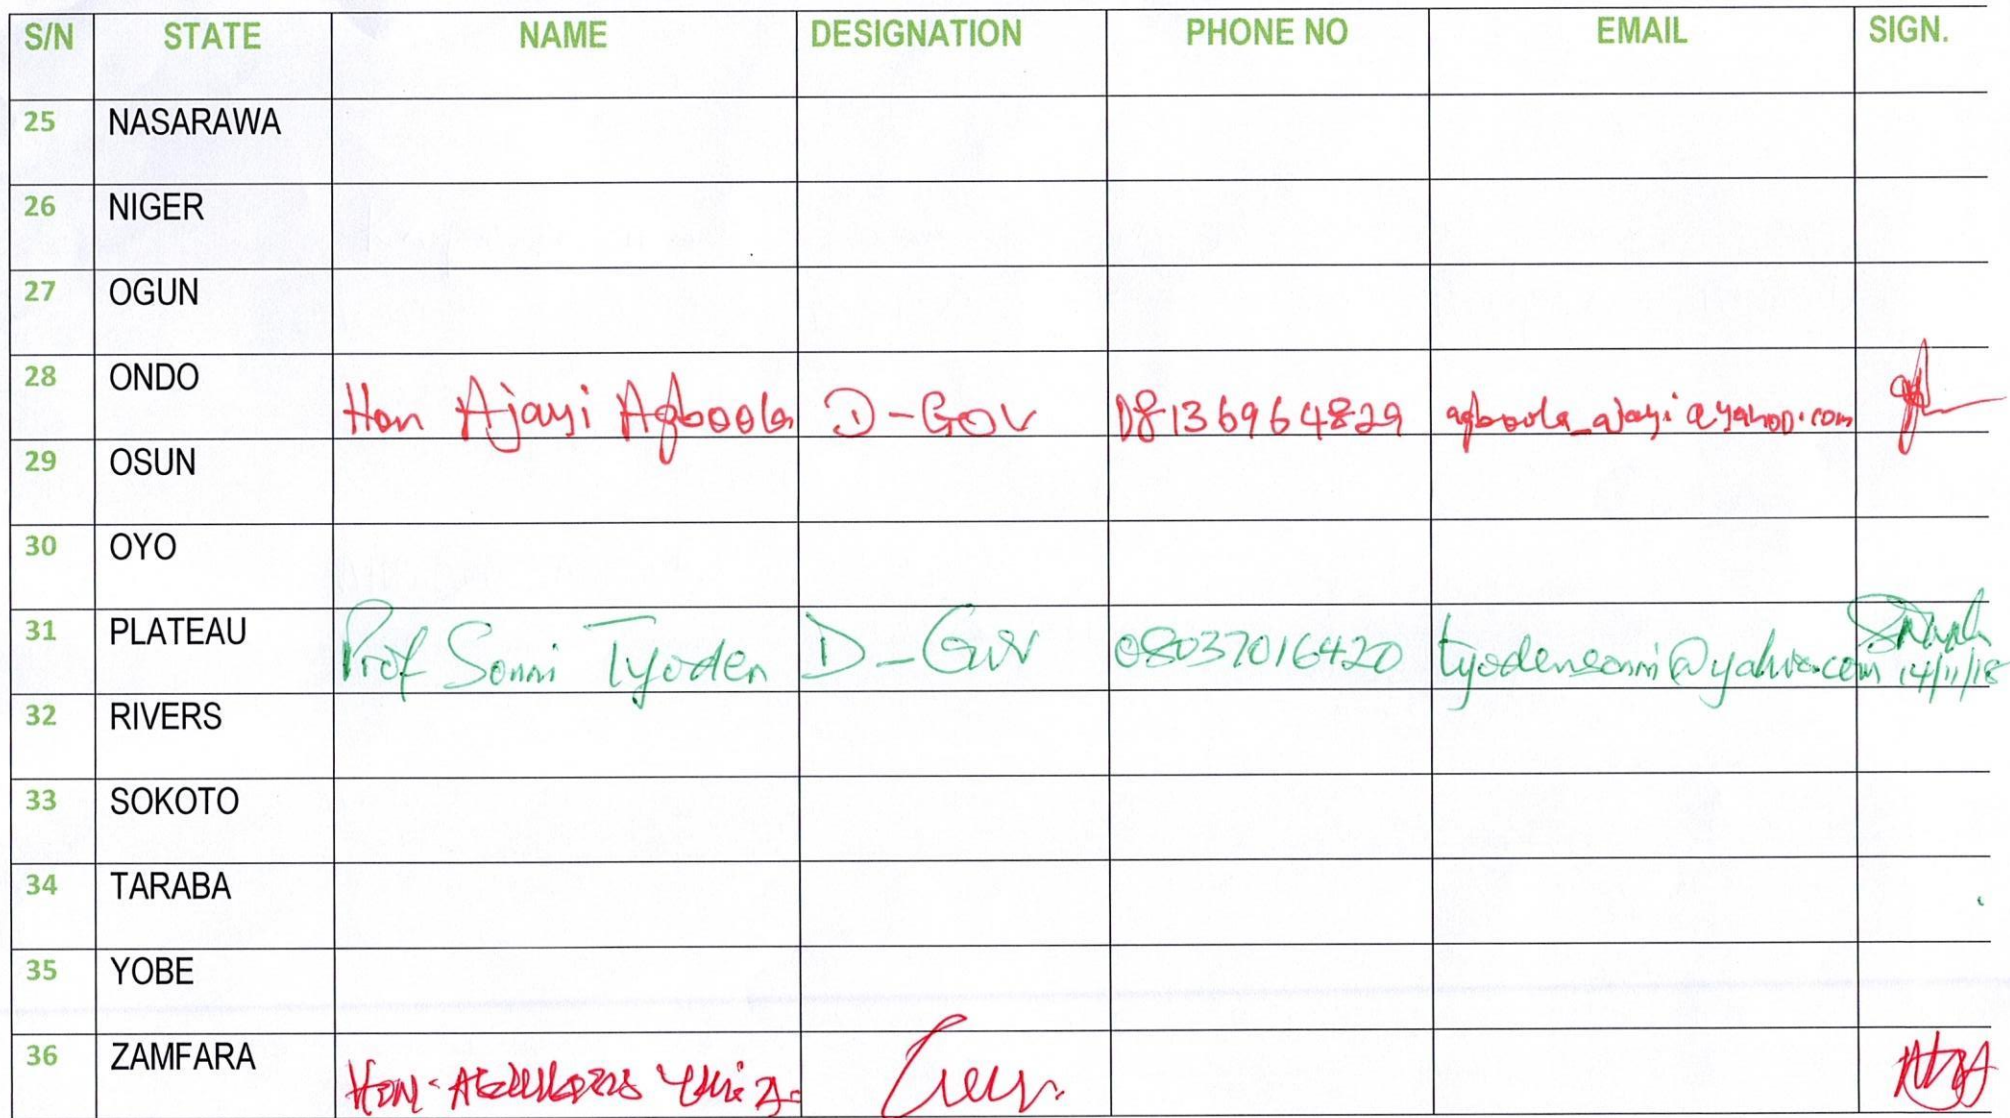 S/N STATE NAME DESIGNATION PHONE NO EMAIL SIGN.
25 NASARAWA
26 NIGER
27 OGUN
28 ONDO Hon Ajayi Agboola D-Gov 08136964829 agboola_ajayi@yahoo.com
29 OSUN
30 OYO
31 PLATEAU Prof Sonni Tyoden D-Gov 08037016420 tyodensonni@yahoo.com 14/11/18
32 RIVERS
33 SOKOTO
34 TARABA
35 YOBE
36 ZAMFARA Hon.